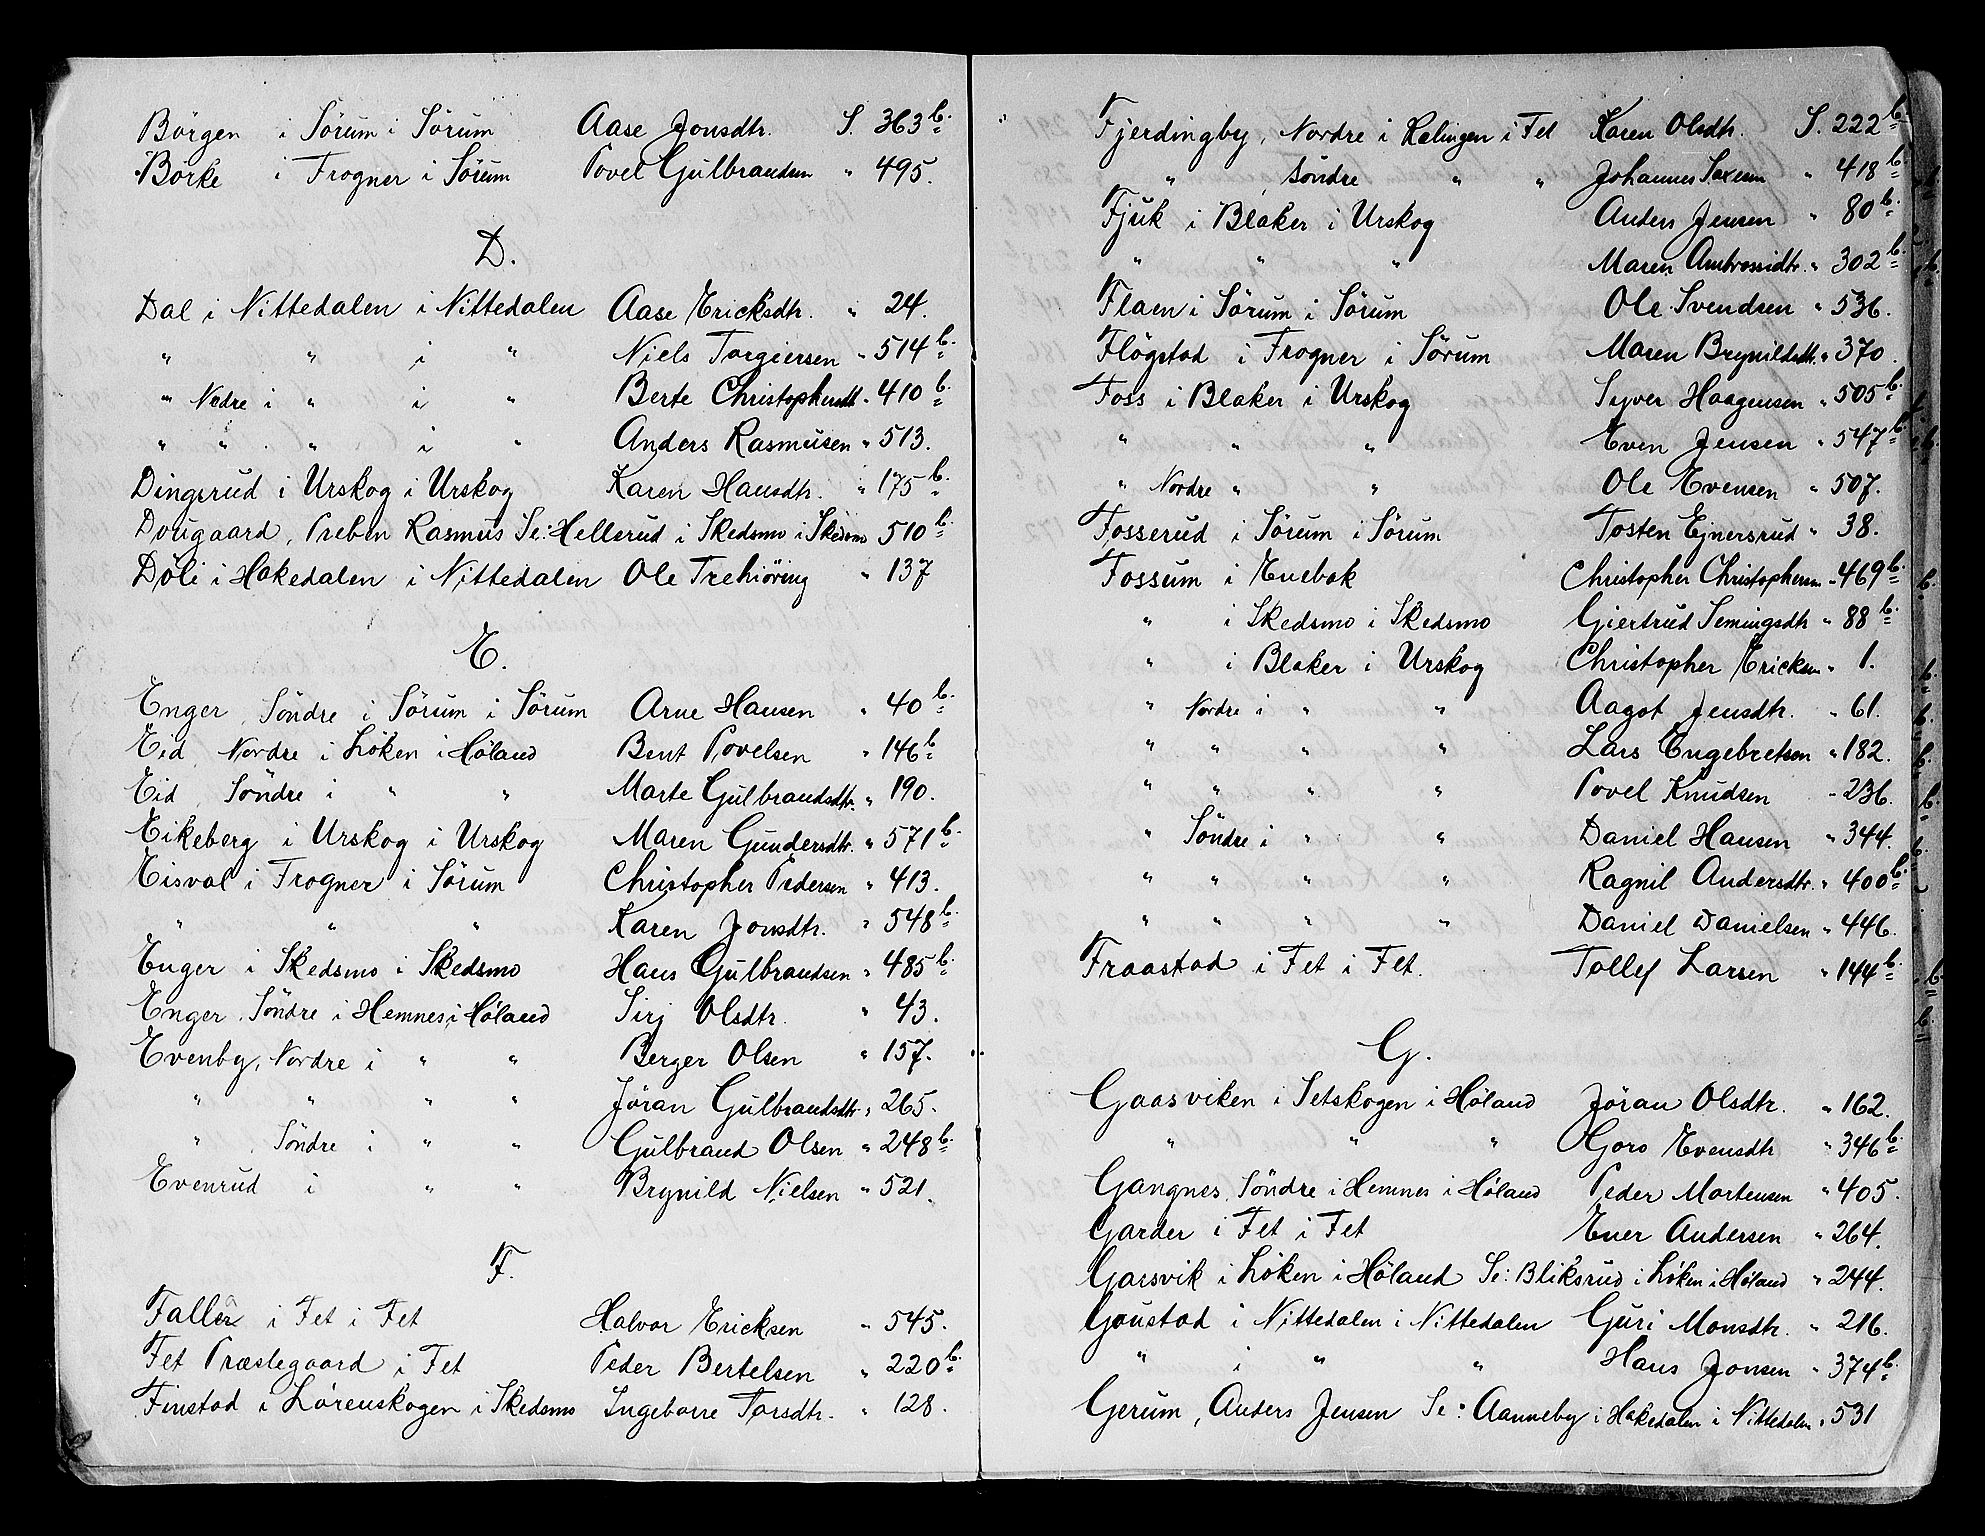 Börgen i Sörum i Sörum Aase Jonsdtr. S. 363 b.
Börke i Frogner i Sörum Povel Gulbrandsen " 495.
D.
Dal i Nittedalen i Nittedalen Aase Ericksdtr. " 24.
" " i " Niels Torgiersen " 514 b.
" Nedre i " i " Berte Christophersdtr " 410 b.
" " " i " Anders Rasmusen " 513.
Dingsrud i Urskog i Urskog Karen Hansdtr. " 175 b.
Dougaard, Preben Rasmus Se: Hellerud i Skedsmo i Skedsmo 510 b.
Döli i Hakedalen i Nittedalen Ole Trehiöring " 137
E.
Enger, Söndre i Sörum i Sörum Arne Hansen " 40 b.
Eid, Nordre i Löken i Höland Bent Povelsen " 146 b
Eid, Söndre i " " Marte Gulbrandsdtr. " 190.
Eikeberg i Urskog i Urskog Maren Gundersdtr. " 571 b.
Eisval i Frogner i Sörum Christopher Pedersen " 413.
" " " Karen Jonsdtr. " 548 b.
Enger i Skedsmo i Skedsmo Hans Gulbrandsen " 485 b.
Enger, Söndre i Hemnes i Höland Sirj Olsdtr. " 43.
Evenby, Nordre i " " Berger Olsen " 157.
" " " " Jöran Gulbrandsdtr " 265.
" Söndre i " " Gulbrand Olsen " 248 b.
Evenrud i " " Brynild Nielsen " 521.
F.
Faller i Fet i Fet Halvor Ericksen " 545.
Fet Præstegaard i Fet Peder Bertelsen " 220 b.
Finstad i Lörenskogen i Skedsmo Ingeborre Torsdtr. " 128.
Fjerdingby, Nordre i Rælingen i Fet Karen Olsdtr. S. 222 b.
" , Söndre " " Johannes Saxesen " 418 b.
Fjuk i Blaker i Urskog Anders Jensen " 80 b.
" " " Maren Ambrosidtr. " 302 b.
Flaen i Sörum i Sörum Ole Svendsen " 536.
Flögstad i Frogner i Sörum Maren Brynildsdtr. " 370.
Foss i Blaker i Urskog Syver Haagensen " 505 b.
" " " Even Jensen " 547 b.
" Nordre " " Ole Evensen " 507.
Fosserud i Sörum i Sörum Tosten Ejnersrud " 38.
Fossum i Enebak Christopher Christophersen " 469 b.
" i Skedsmo i Skedsmo Giertrud Semingsdtr " 88 b.
" i Blaker i Urskog Christopher Ericksen " 1.
" Nordre i " " Aagot Jensdtr. " 61.
" " " " Lars Engebretsen " 182.
" " " " Povel Knudsen " 236.
" Söndre i " " Daniel Hansen " 344.
" " " " Ragnil Andersdtr. " 400 b.
" " " " Daniel Danielsen " 446.
Fraastad i Fet i Fet. Tollef Larsen " 144 b.
G.
Gaasviken i Setskogen i Höland Jöran Olsdtr. " 162.
" " " Goro Evensdtr " 346 b.
Gangnes, Söndre i Hemnes i Höland Peder Mortensen " 405.
Garder i Fet i Fet Ener Andersen " 264.
Garsvik i Löken i Höland Se: Bliksrud i Löken i Höland " 244.
Goustad i Nittedalen i Nittedalen Guri Monsdtr. " 216.
" i " " Hans Jonsen " 374 b.
Gerum, Anders Jensen Se: Aanneby i Hakedalen i Nittedalen " 531